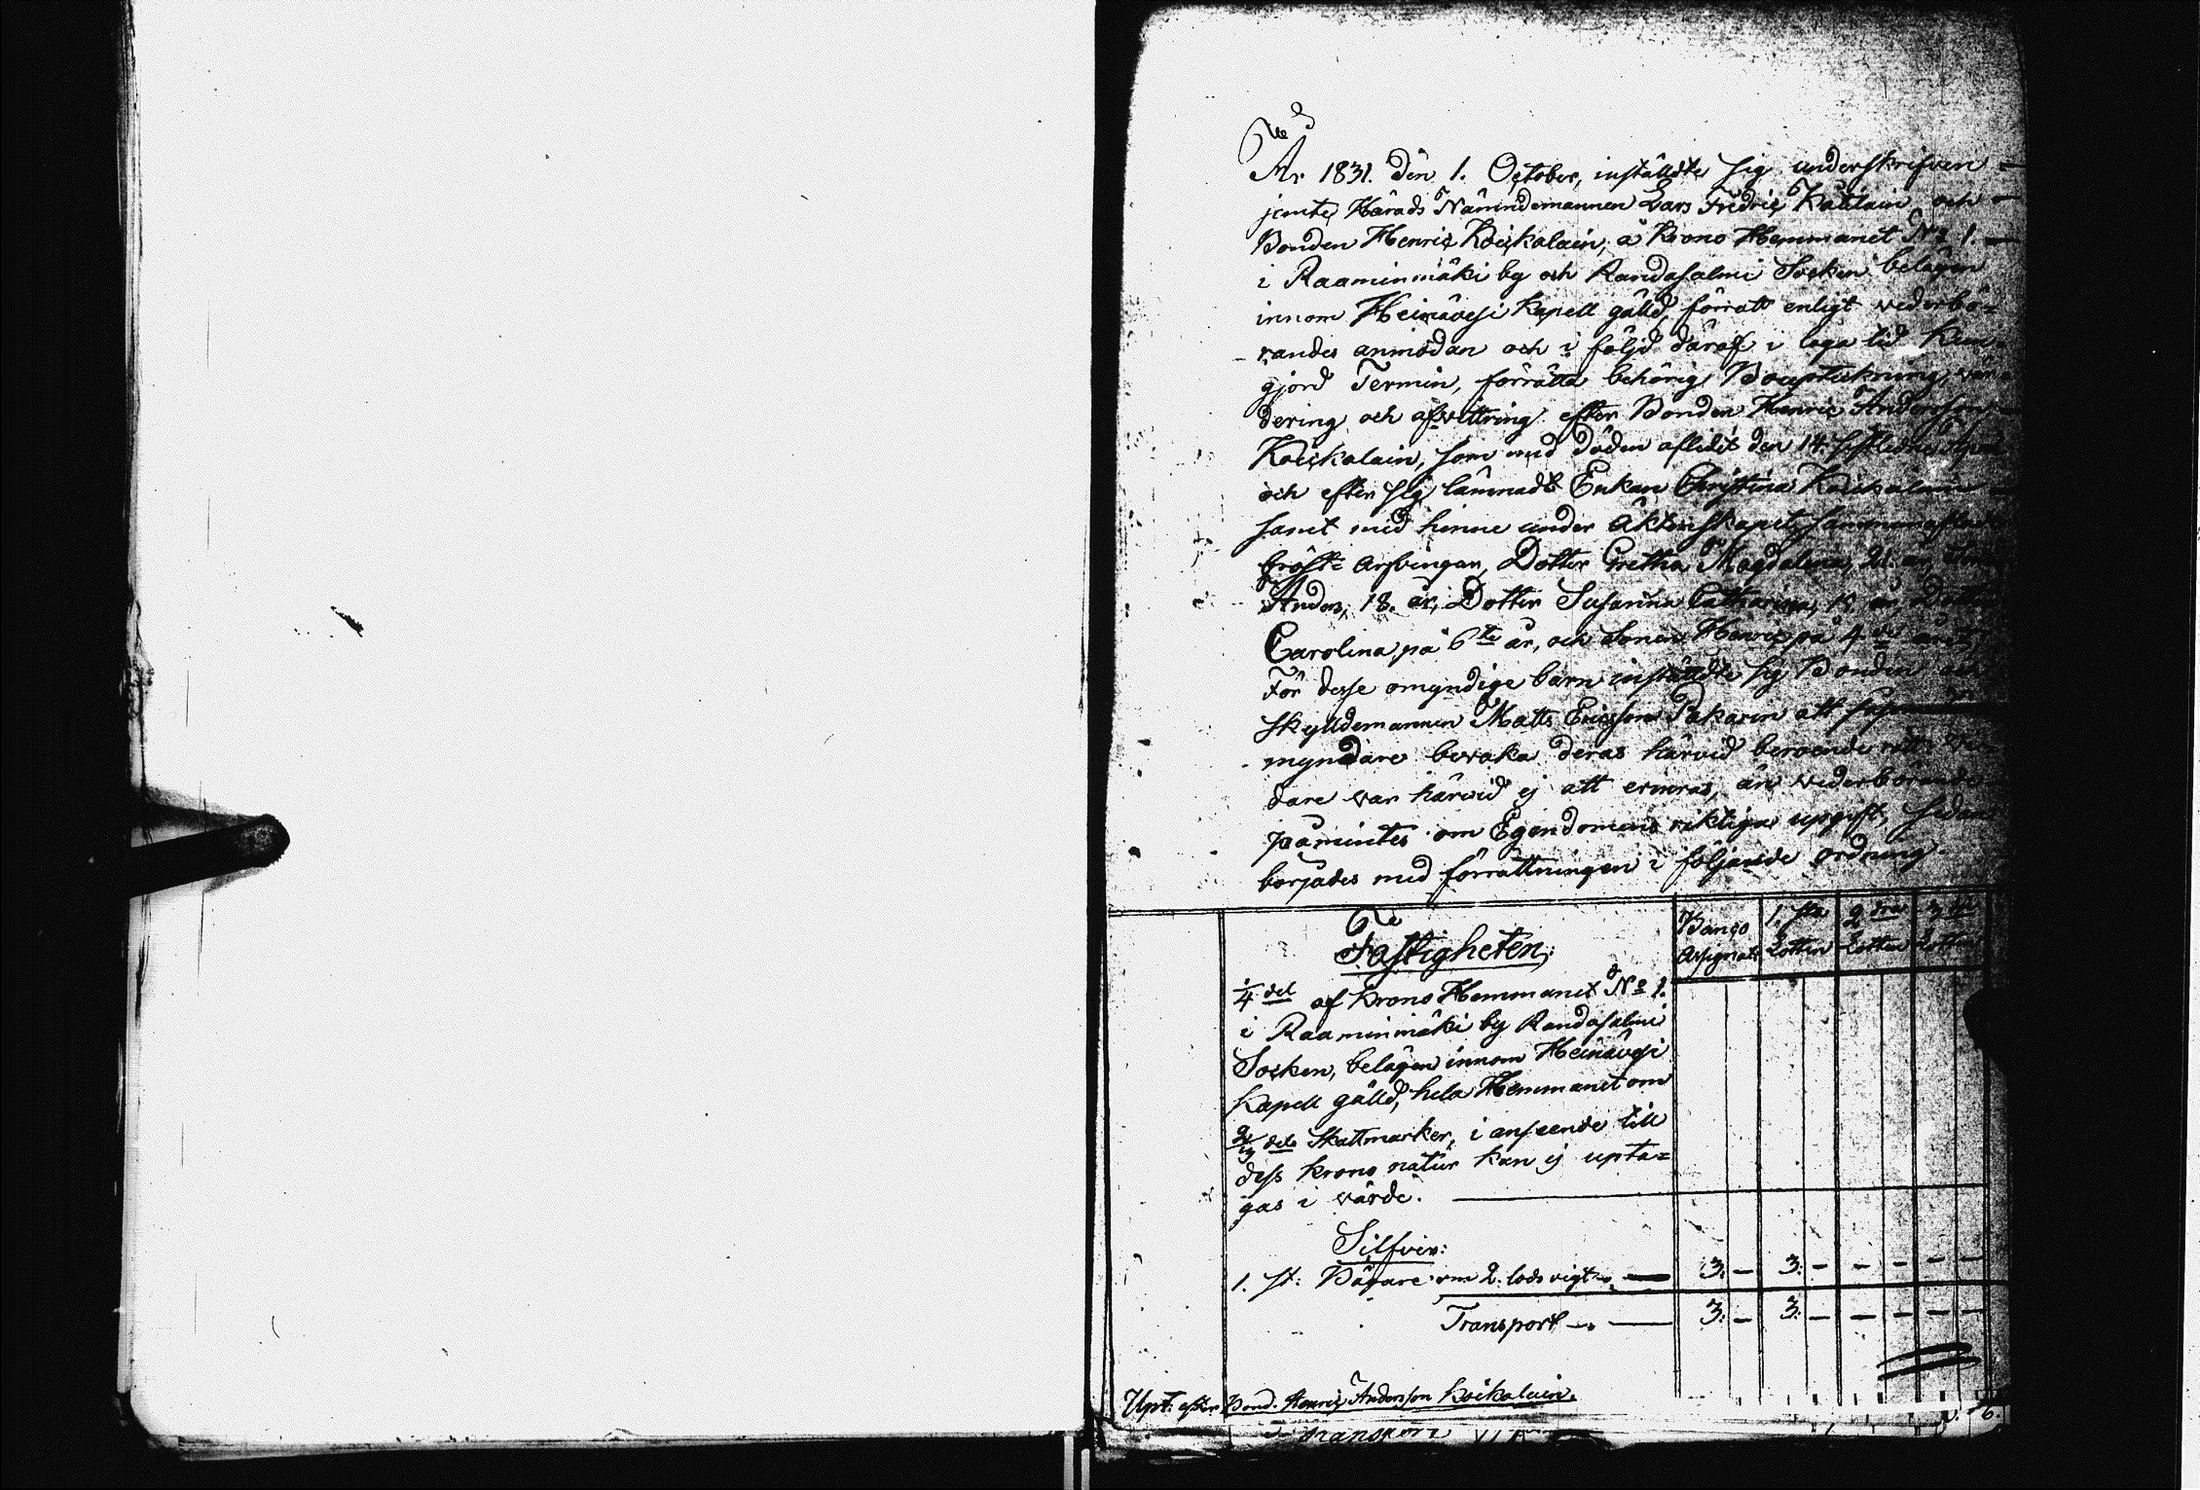 År 1831. den 1. October, instäldte sig underskrifven
jemte Härads Nämndemannen Lars Fredric och
Bonden Henric Koickalain, å Krono Hemmanet No 1.
i Raaminmäki by och Randasalmi Socken belägen
innom Heinävesi Kapell gäld, förrätt enligt vederbö=
randes anmodan och i följd däraf i laga tid kun-
gjord Termin, förrätta behörig Bouptekning, vär-
dering och afvittring efter Bonden Henric Andersson
Koickalain, som med döden aflidit den 14. sistledne
och efter sig lämnadt Enkan Christina Koickalain
samt med henne under äktenskapet sammanaflade
bröst= arfvingar, Dotter Gretha Magdalena, 21. år,
Anders, 18. år, Dotter Susanna Catharina, 15. år, Dotter
Carolina på 6te år, och Sonen Henric på 4de året,
För desse omyndige barn instäldte sig Bonden
skyldemannen Matts Ericsson Pakarin att såsom
myndare bevaka deras härvid beroende rätt
dare var härvid ej att erinras, än vederbörande
påmintes om Egendomens riktiga upgift, sedan
börjades med förrättningen i följande ordning.
Fastigheten:
Banco Assignats 1.sta Lotten 2dra Lotten 3die Lotten
1/4 del af Krono Hemmanet No 1.
i Raaminmäki by Randasalmi
Socken, belägen innom Heinävesi
Kapell gäld, hela Hemmanet om
dels Skattmarker, i anseende till
dess krono natur kan ej upta=
gas i värde.
Silfver:
1. st: Bägare om 2. lods vigt 3. — 3. — — — — —
Transport 3. — 3. — — — — —
Upt: efter Bond. Henric Andersson Koikalain.
Transport